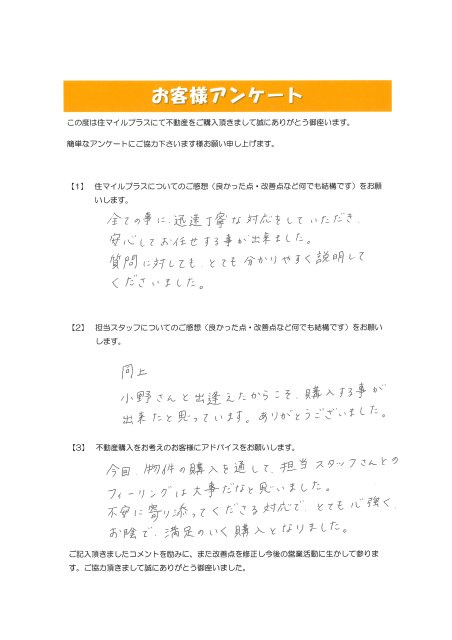 お客様アンケート
この度は住マイルプラスにて不動産をご購入頂きまして誠にありがとう御座います。
簡単なアンケートにご協力下さいます様お願い申し上げます。
【1】 住マイルプラスについてのご感想（良かった点・改善点など何でも結構です）をお願
いします。
全ての事に、迅速丁寧な対応をしていただき、
安心してお任せする事が出来ました。
質問に対しても、とても分かりやすく説明して
くださいました。
【2】 担当スタッフについてのご感想（良かった点・改善点など何でも結構です）をお願い
します。
同上
小野さんと出逢えたからこそ、購入する事が
出来たと思っています。ありがとうございました。
【3】 不動産購入をお考えのお客様にアドバイスをお願いします。
今回、物件の購入を通して、担当スタッフさんとの
フィーリングは大事だなと思いました。
不安に寄り添ってくださる対応で、とても心強く、
お陰で、満足のいく購入となりました。
ご記入頂きましたコメントを励みに、また改善点を修正し今後の営業活動に生かして参りま
す。ご協力頂きまして誠にありがとう御座いました。